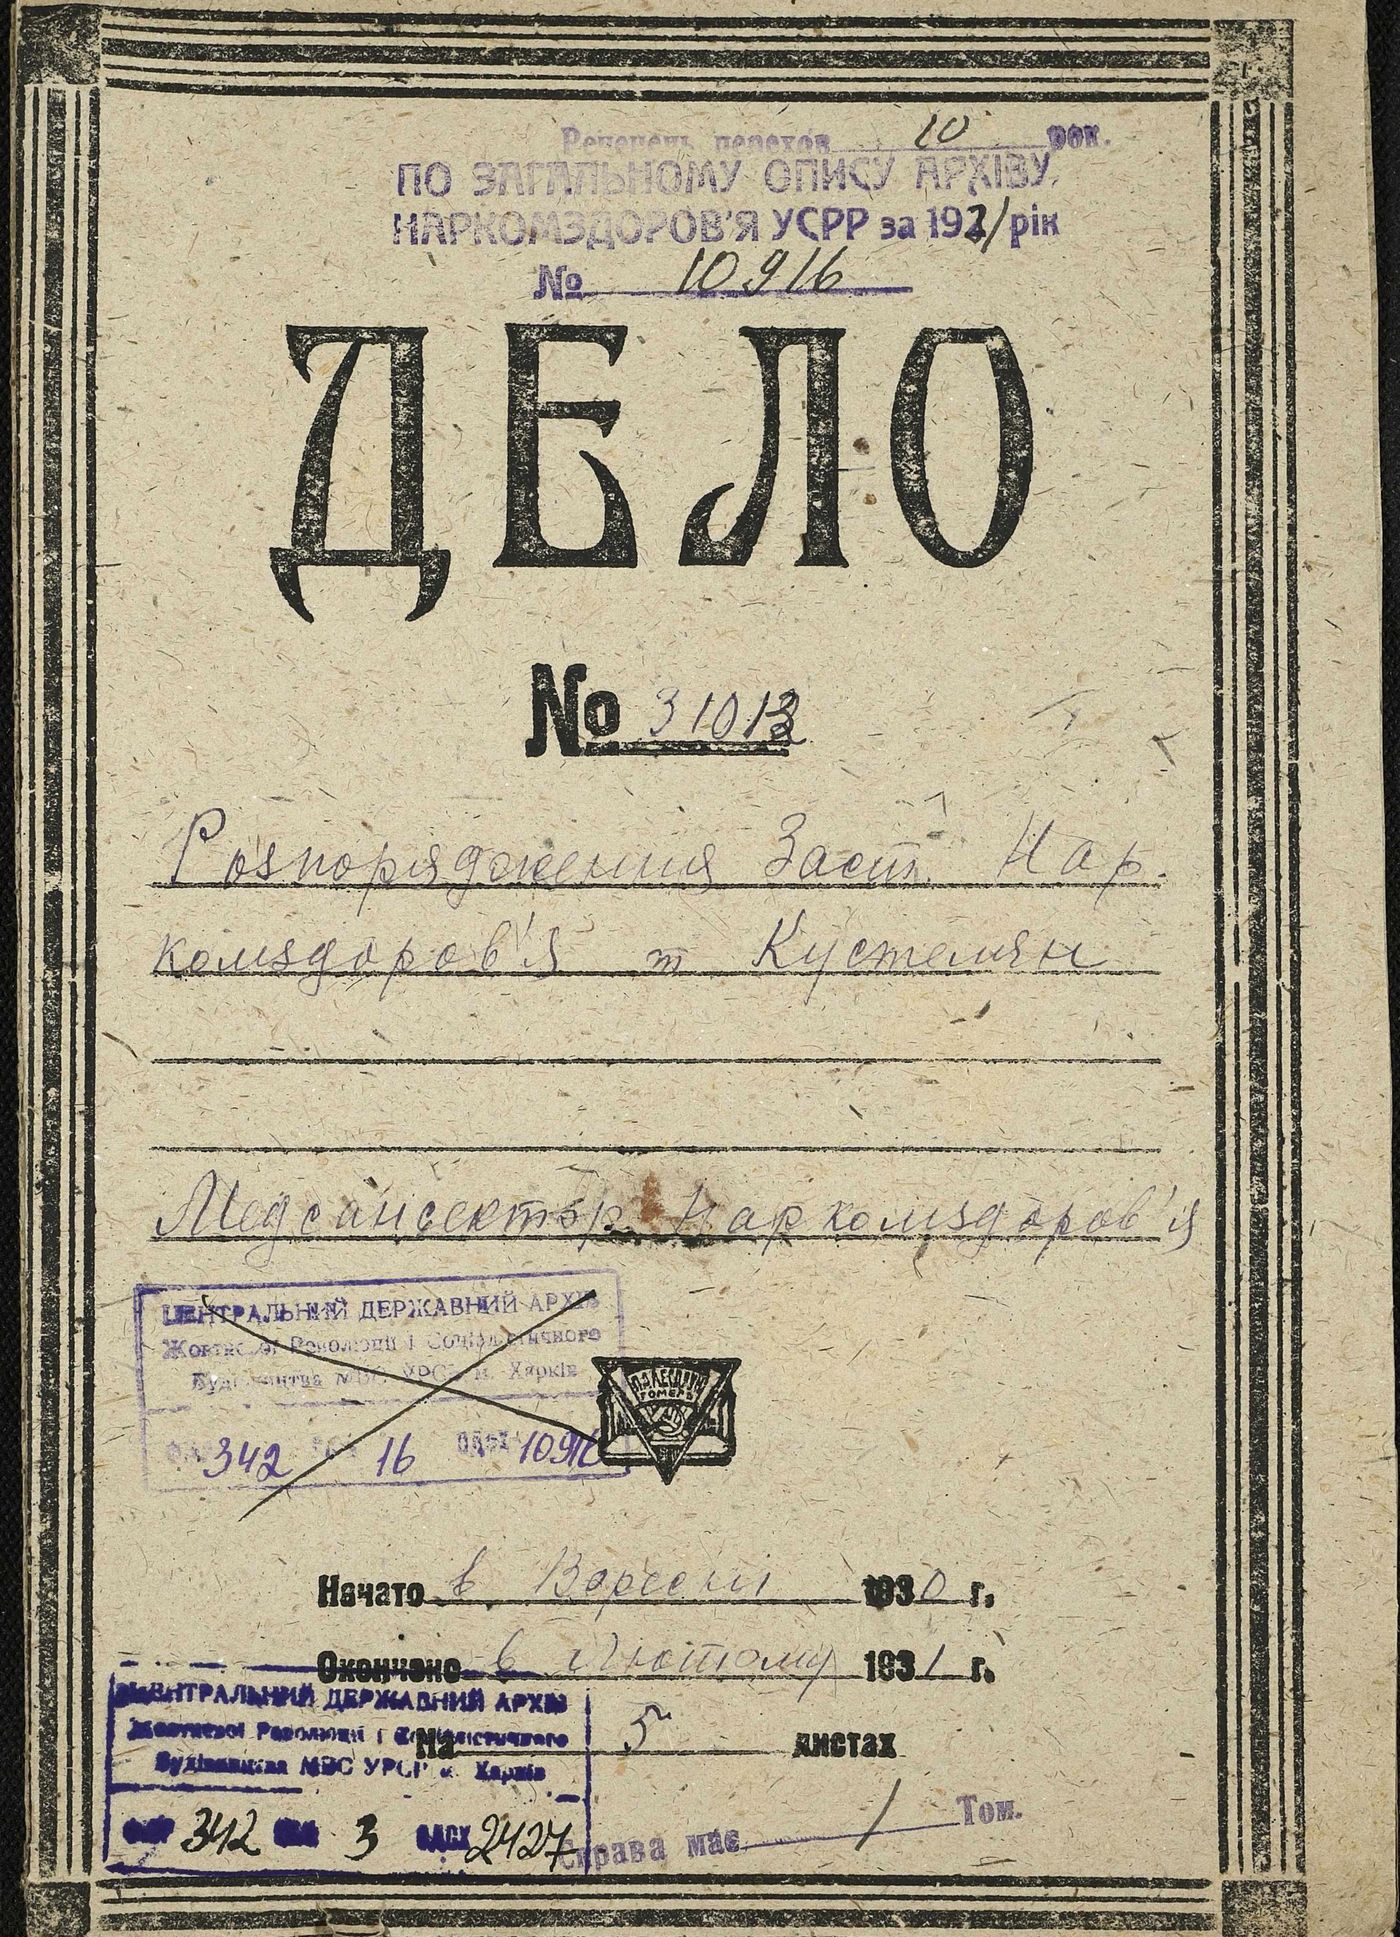 Реченець перехов. 10 рок.
ПО ЗАГАЛЬНОМУ ОПИСУ АРХІВУ
НАРКОМЗДОРОВ'Я УСРР за 1931 рік
№ 10916
ДЕЛО
№ 31013
Розпорядження Заст. Нар.
комздоров'я т Кустелян
Медсансектор Наркомздоров'я
ЦЕНТРАЛЬНИЙ ДЕРЖАВНИЙ АРХІВ
Жовтневої Революції і Соціалістичного
Будівництва МВС УРСР м. Харків
342 16 ОДСХ 10916
ПАЛЕСДРУК
ГОМЕЛЬ
Начато в Вересні 1930 г.
Окончено в Лютому 1931 г.
ЦЕНТРАЛЬНИЙ ДЕРЖАВНИЙ АРХІВ
Жовтневої Революції і Соціалістичного
Будівництва МВС УРСР м. Харків
На 5 листах
342 3 ОДСХ 2427
Справа має 1 Том.